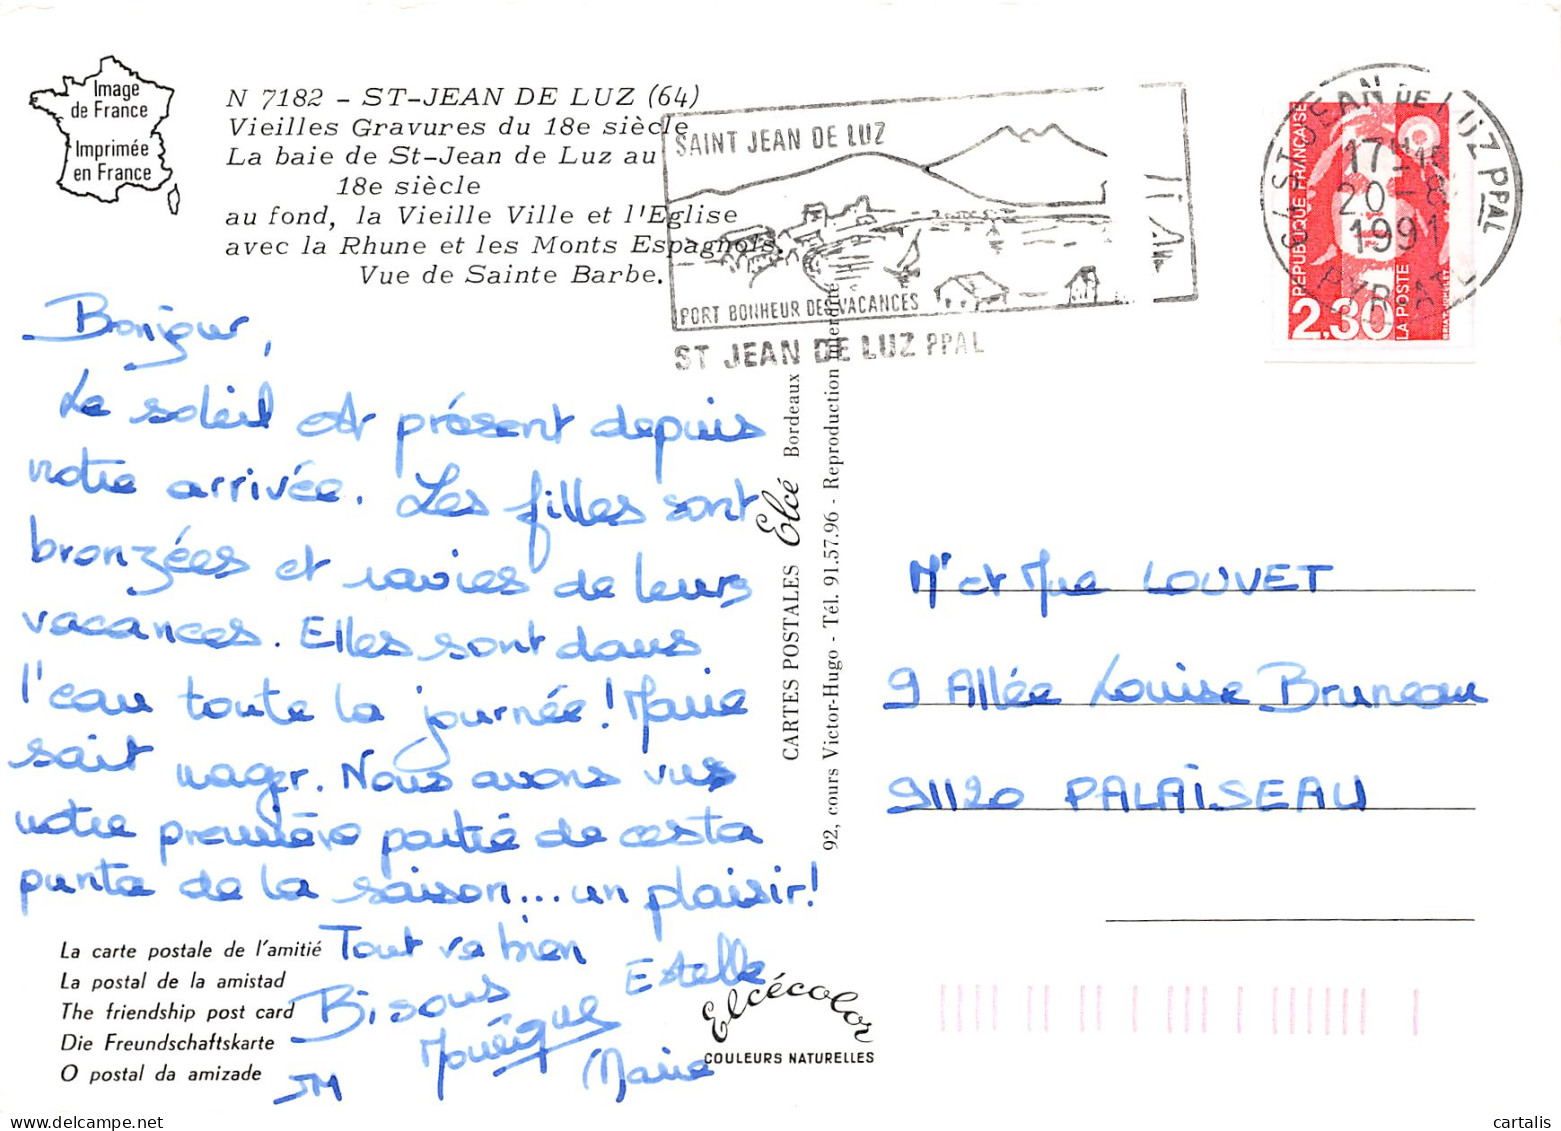 Image
de France
Imprimée
en France
N 7182 - ST-JEAN DE LUZ (64)
Vieilles Gravures du 18e siècle
La baie de St-Jean de Luz au
18e siècle
au fond, la Vieille Ville et l'Eglise
avec la Rhune et les Monts Espagnols.
Vue de Sainte Barbe.
SAINT JEAN DE LUZ
PORT BONHEUR DES VACANCES
ST JEAN DE LUZ PPAL
64 ST JEAN DE LUZ PPAL
17H
20-8
1991
REPUBLIQUE FRANÇAISE
2,30
LA POSTE
Bonjour,
Le soleil est présent depuis
notre arrivée. Les filles sont
bronzées et ravies de leurs
vacances. Elles sont dans
l'eau toute la journée! Marie
sait nager. Nous avons vus
notre première partie de cesta
punta de la saison... un plaisir!
Tout va bien
Bisous
Estelle
Marie
JM
La carte postale de l'amitié
La postal de la amistad
The friendship post card
Die Freundschaftskarte
O postal da amizade
Elcécolor
COULEURS NATURELLES
CARTES POSTALES Elcé Bordeaux
92, cours Victor-Hugo - Tél. 91.57.96 - Reproduction interdite
Mr et Mme LOUVET
9 Allée Louise Bruneau
91120 PALAISEAU
cartalis